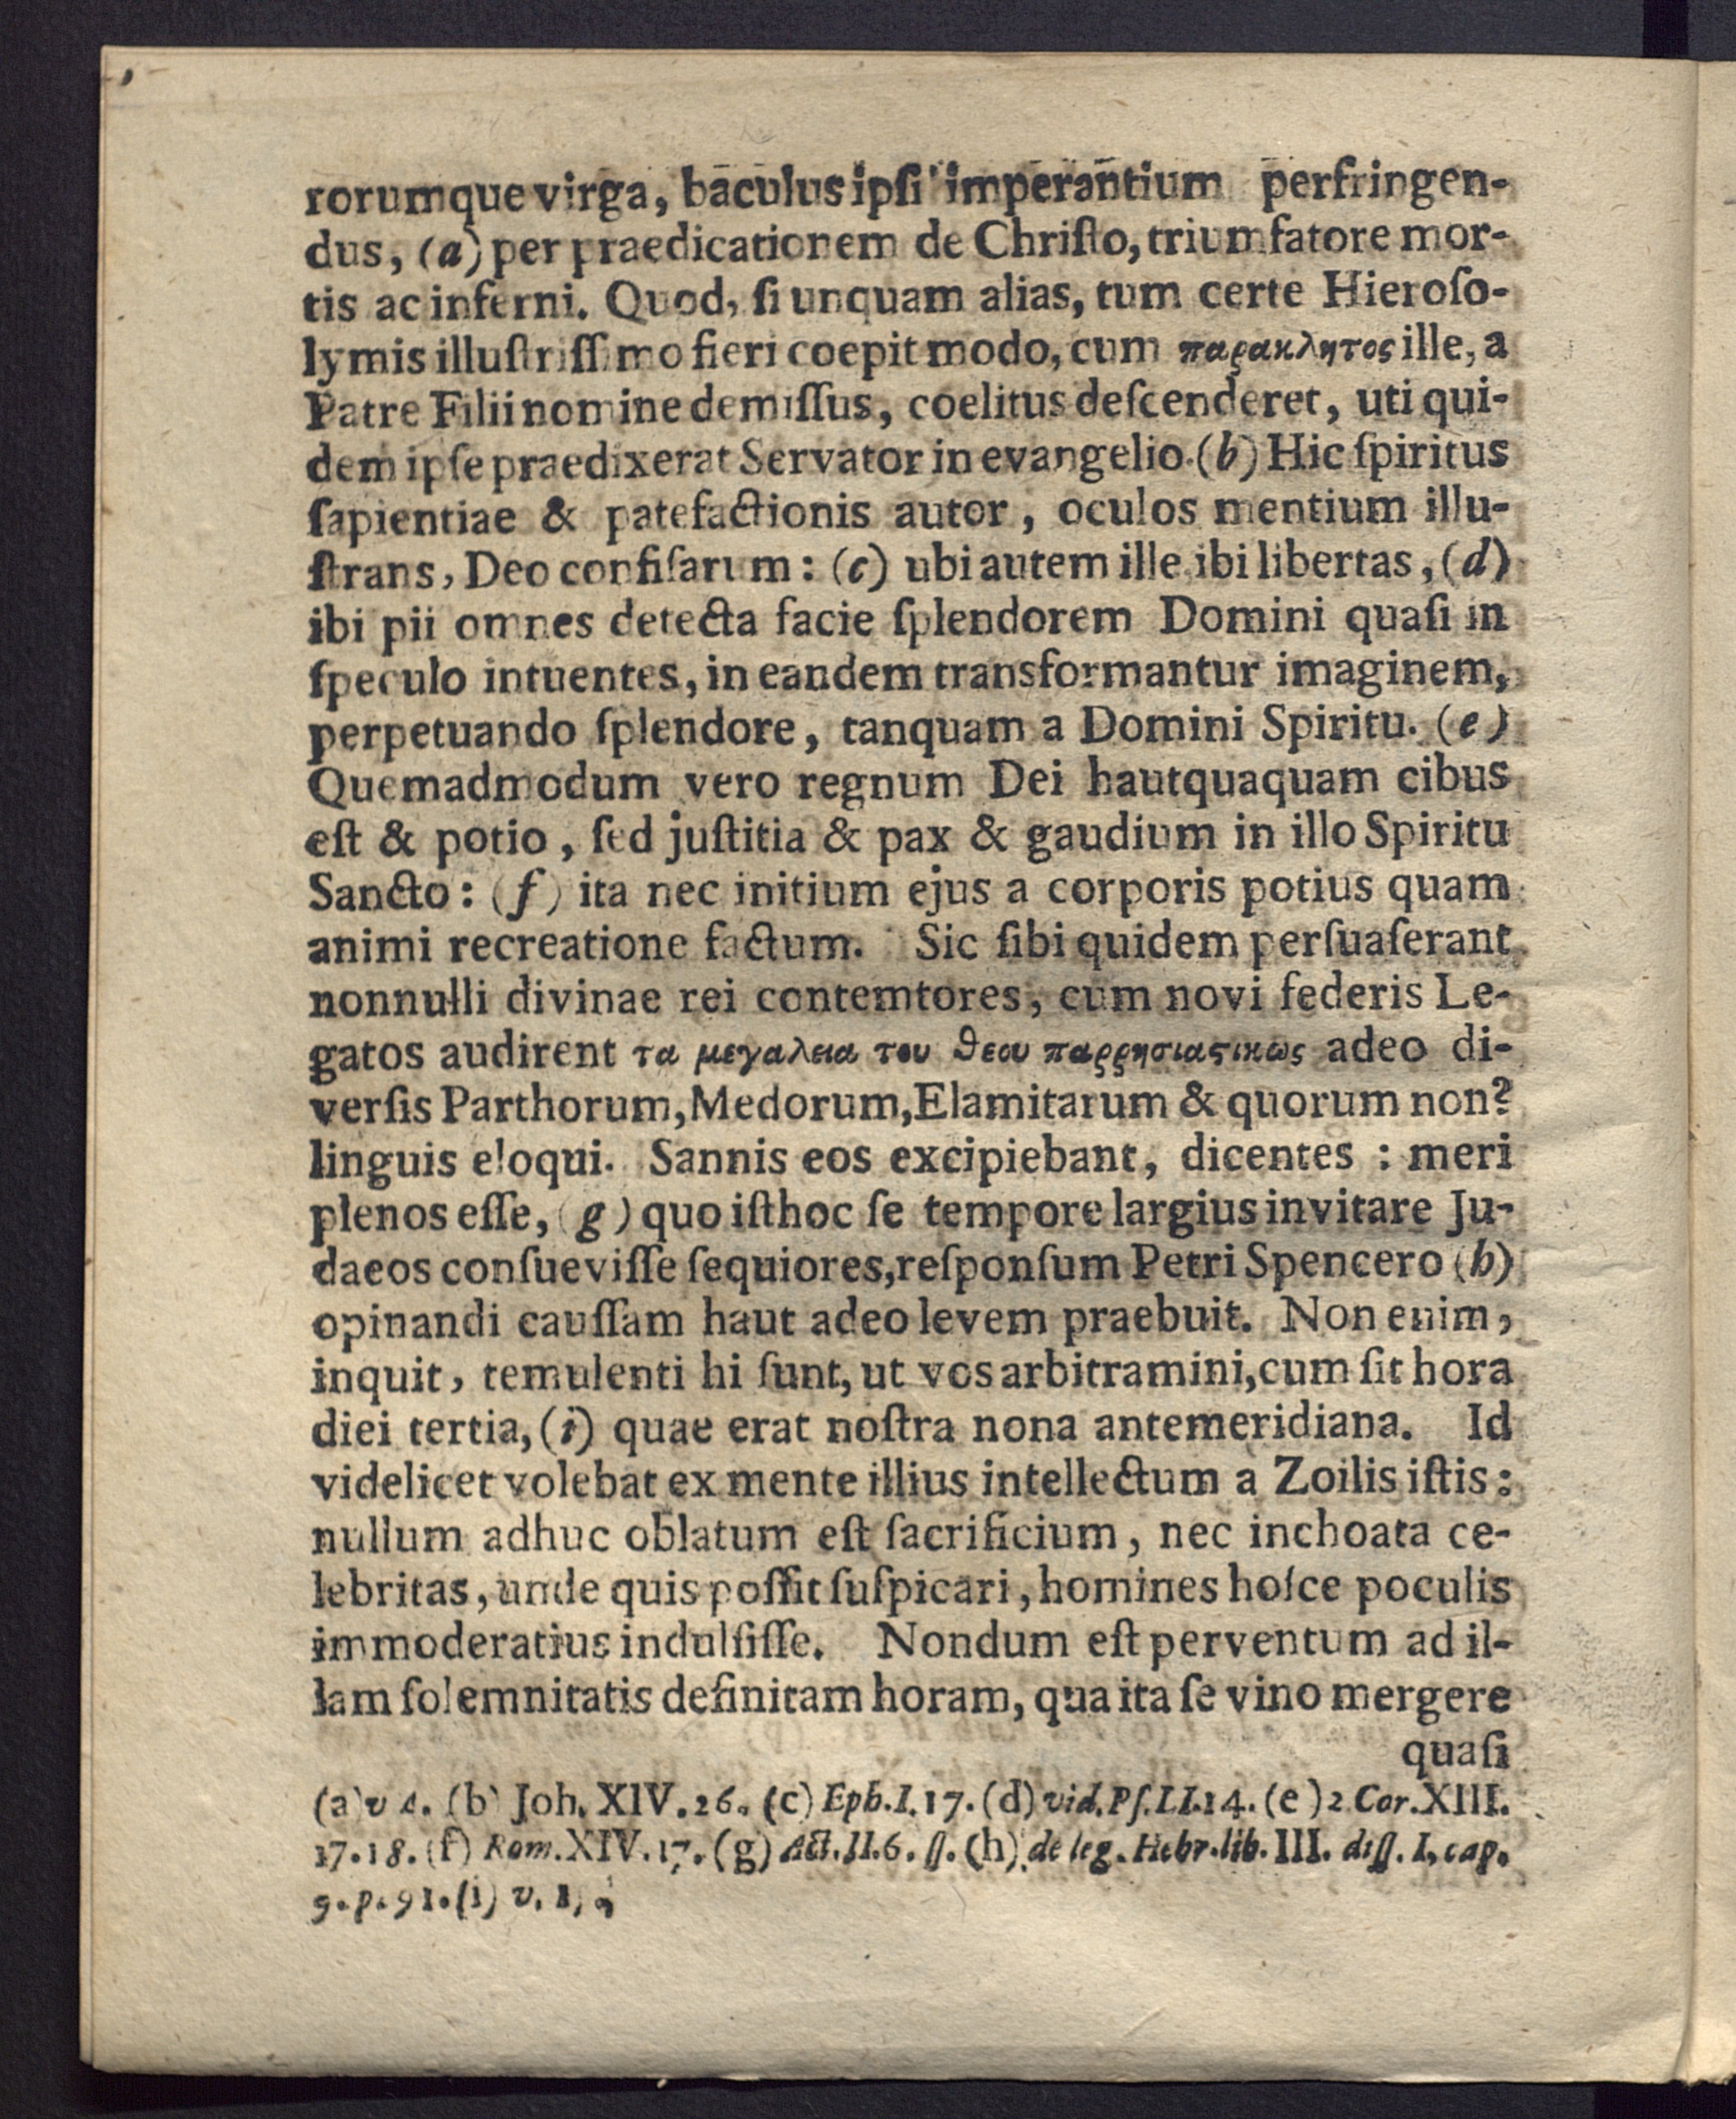 rorumque virga, baculus ipſi imperantium perfringen-
dus, (a) per praedicationem de Chriſto, triumfatore mor-
tis ac inferni. Quod, ſi unquam alias, tum certe Hieroſo-
lymis illuſtriſſimo fieri coepit modo, cum παρακλητος ille, a
Patre Filii nomine demiſſus, coelitus deſcenderet, uti qui-
dem ipſe praedixerat Servator in evangelio. (b) Hic ſpiritus
ſapientiae & patefactionis autor, oculos mentium illu-
ſtrans, Deo confiſarum: (c) ubi autem ille ibi libertas, (d)
ibi pii omnes detecta facie ſplendorem Domini quaſi in
ſpeculo intuentes, in eandem transformantur imaginem,
perpetuando ſplendore, tanquam a Domini Spiritu. (e)
Quemadmodum vero regnum Dei hautquaquam cibus
eſt & potio, ſed juſtitia & pax & gaudium in illo Spiritu
Sancto: (f) ita nec initium ejus a corporis potius quam
animi recreatione factum. Sic ſibi quidem perſuaſerant
nonnulli divinae rei contemtores, cum novi federis Le-
gatos audirent τα μεγαλεια του θεου παρρησιαϛικως adeo di-
verſis Parthorum, Medorum, Elamitarum & quorum non?
linguis eloqui. Sannis eos excipiebant, dicentes: meri
plenos eſſe, (g) quo iſthoc ſe tempore largius invitare Ju-
daeos conſueviſſe ſequiores, reſponſum Petri Spencero (h)
opinandi cauſſam haut adeo levem praebuit. Non enim,
inquit, temulenti hi ſunt, ut vos arbitramini, cum ſit hora
diei tertia, (i) quae erat noſtra nona antemeridiana. Id
videlicet volebat ex mente illius intellectum a Zoilis iſtis:
nullum adhuc oblatum eſt ſacrificium, nec inchoata ce-
lebritas, unde quis poſſit ſuſpicari, homines hoſce poculis
immoderatius indulſiſſe. Nondum eſt perventum ad il-
lam ſolemnitatis definitam horam, qua ita ſe vino mergere
quaſi
(a) v (b) Joh. XIV. 26. (c) Eph. I. 17. (d) vid. Pſ. LI. 14. (e) 2 Cor. XIII.
17. 18. (f) Rom. XIV. 17. (g) Act. II. 6. ſſ. (h) de leg. Hebr. lib. III. diſſ. I. cap.
9. p. 91. (i) v.